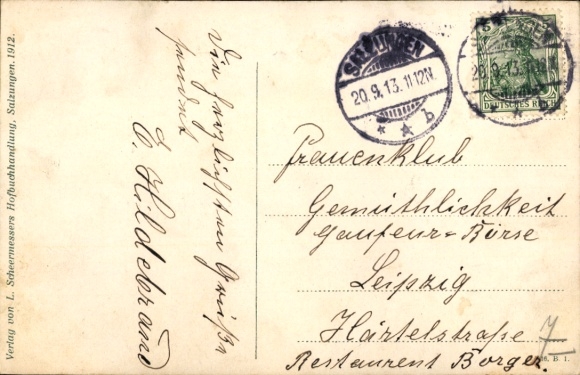 Verlag von L. Scheermessers Hofbuchhandlung, Salzungen. 1912.
Die herzlichsten Grüße
sendet
C. Hildebrand
SALZUNGEN
20.9.13.11-12N.
* * b
DEUTSCHES REICH
Frauenklub
Gemüthlichkeit
Börse
Leipzig
Härtelstraße
Restaurent Borger.
B. 1.